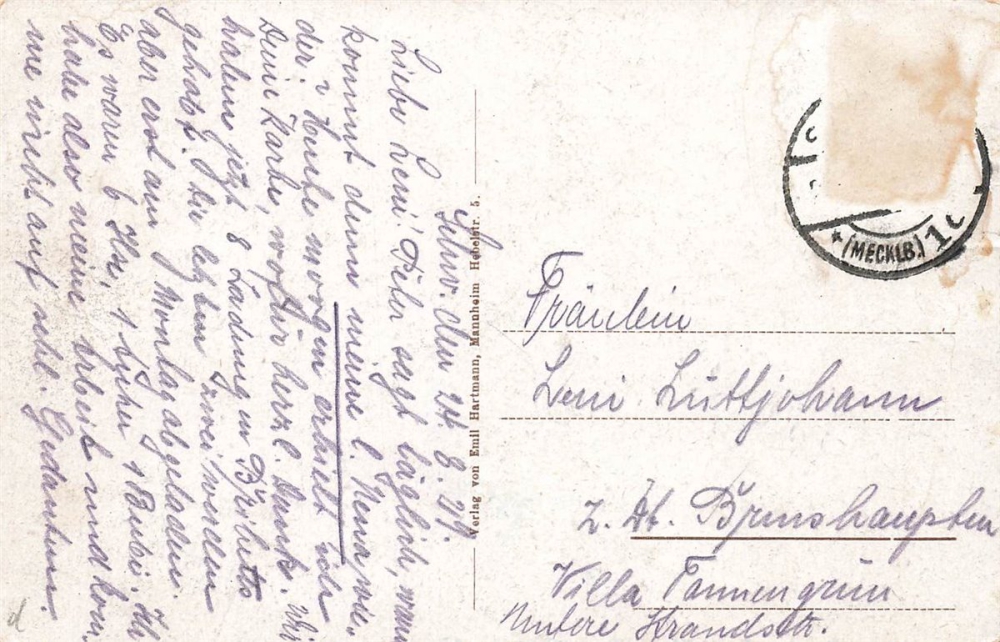 Schw. den 24. 8. 19.
Liebe Leni! Peter sagt täglich, wann
kommt denn meine l. Nena wie-
der? Heute morgen erhielt ich
Deine Karte, wofür herzl. Dank. Wir
haben jetzt 8 Ladungen Briketts
gehabt. Die letzten zwei werden
aber erst am Montag abgeladen.
Es waren 6 1
habe also meine Arbeit und kom-
me nicht auf schl. Gedanken.
Verlag von Emil Hartmann, Mannheim Hebelstr. 5.
(MECKLB.)
Fräulein
Leni Lüttjohann
z. Zt. Brunshaupten
Villa Tannengrün
Untere Strandstr.
d